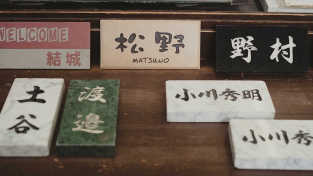 WELCOME
結城
松野
MATSUNO
野村
土谷
渡邉
小川秀明
小川秀明